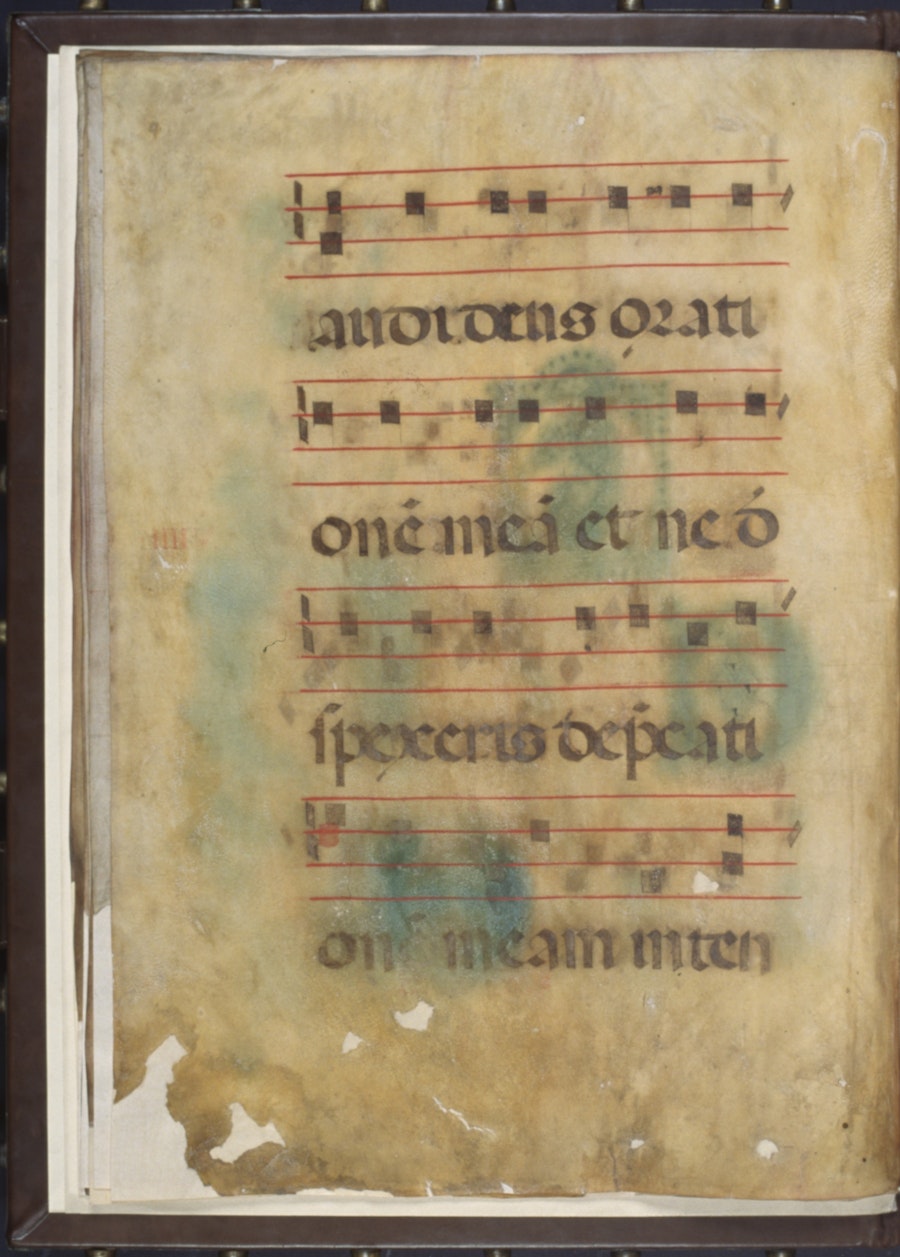 audi deus orati
onē meā et ne d̄
spexeris dep̄cati
onē meam inten